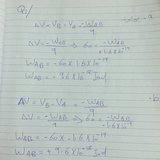 Q2/
ΔV = V_B - V_A = -W_AB/q
ΔV = -W_AB/q ⇒ 60 = -W_AB/1.6×10^-19
W_AB = -60×1.6×10^-19
W_AB = -96×10^-19 Joul
ΔV = V_B - V_A = -W_AB/q
ΔV = -W_AB/q ⇒ 60 = -W_AB/-1.6×10^-19
W_AB = -60×-1.6×10^-19
W_AB = +96×10^-19 Joul